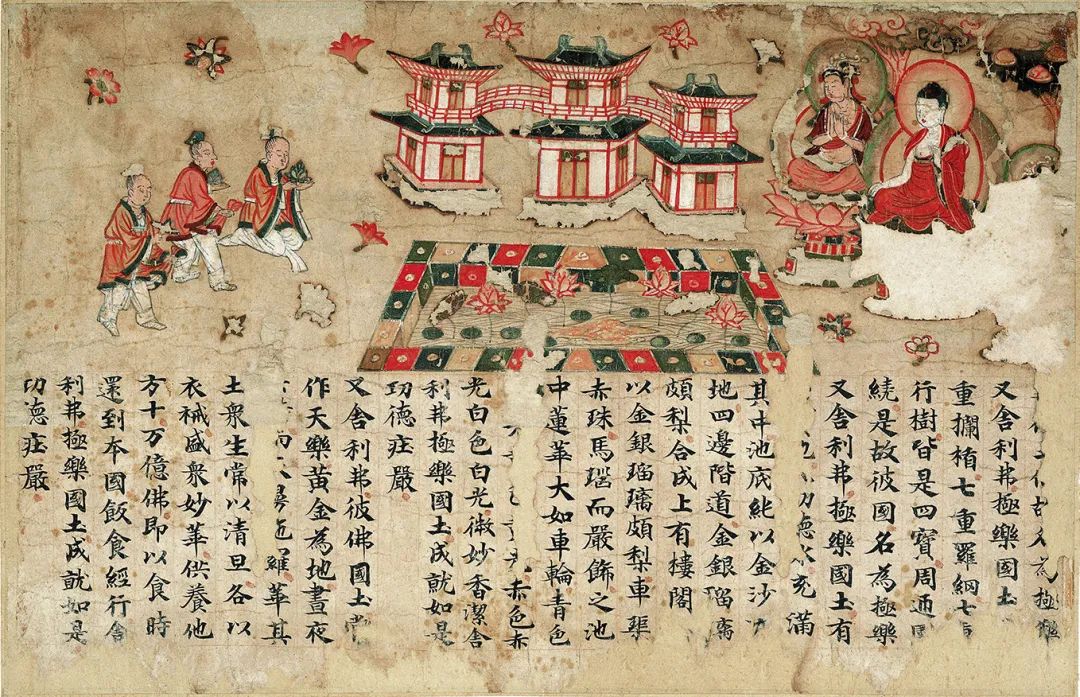 為極
又舍利弗極樂國土
重攔楯七重羅網七
行樹皆是四寶周迊
繞是故彼國名為極樂
又舍利弗極樂國土有
功德水充滿
其中池底純以金沙
地四邊階道金銀瑠璃
頗梨合成上有樓閣
以金銀瑠璃頗梨車璖
赤珠馬瑙而嚴飾之池
中蓮華大如車輪青色
赤色赤
光白色白光微妙香潔舍
利弗極樂國土成就如是
功德庄嚴
又舍利弗彼佛國土常
作天樂黃金為地晝夜
羅華其
土衆生常以清旦各以
衣祴盛衆妙華供養他
方十万億佛即以食時
還到本國飯食經行舍
利弗極樂國土成就如是
功德庄嚴